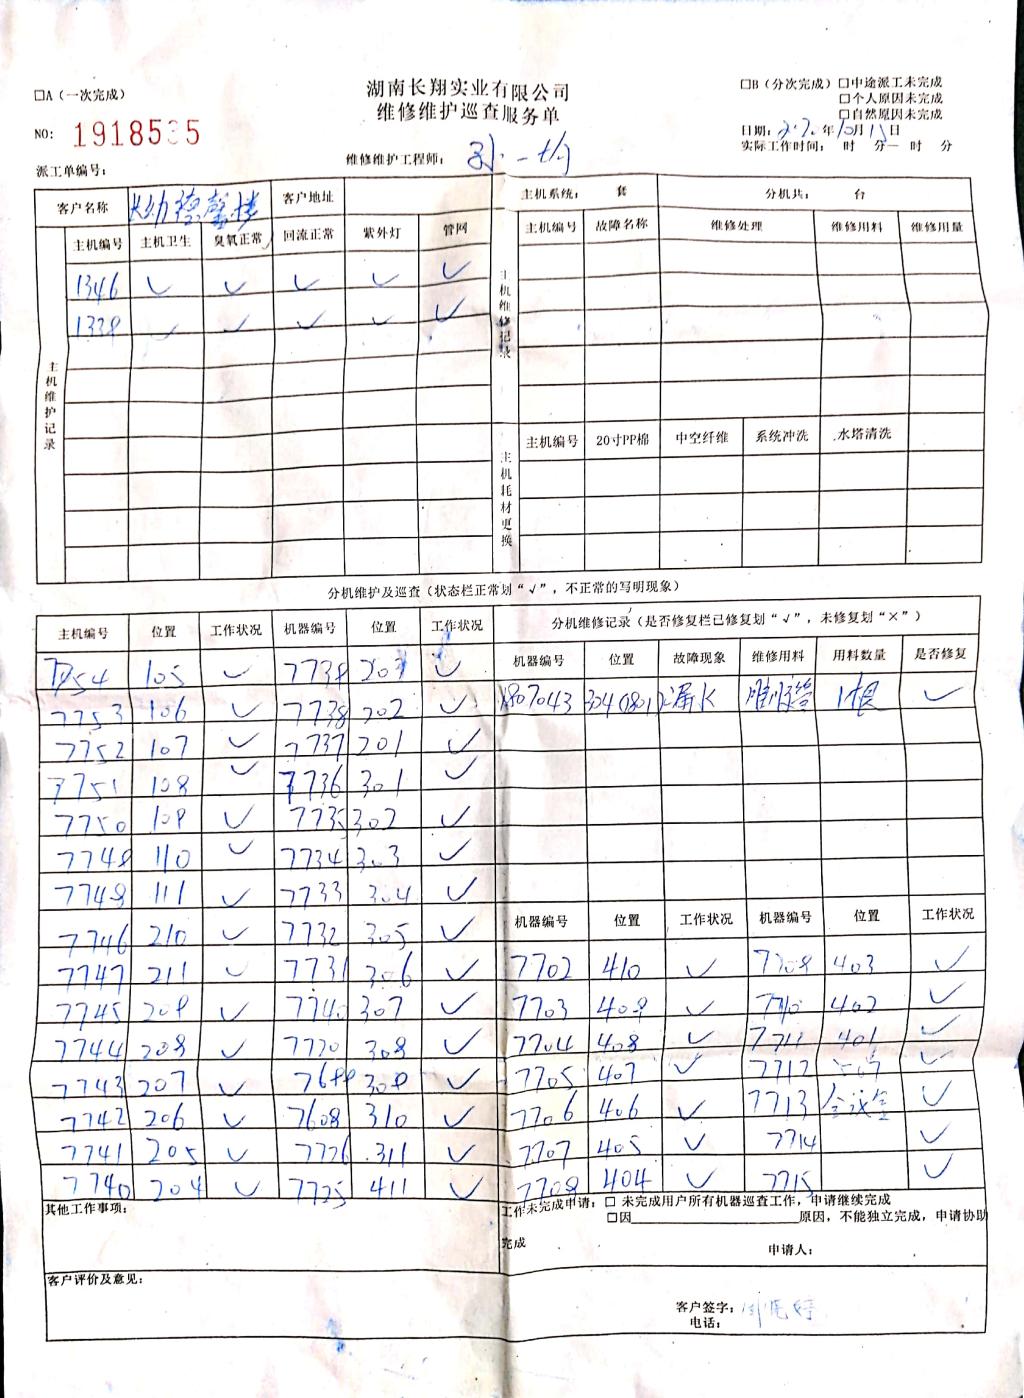 □A（一次完成）
湖南长翔实业有限公司
维修维护巡查服务单
□B（分次完成）□中途派工未完成
□个人原因未完成
□自然原因未完成
NO: 1918535
日期: 年10月15日
实际工作时间: 时 分— 时 分
派工单编号:
维修维护工程师:
客户名称 长幼德馨楼 客户地址 主机系统: 套 分机共: 台
主机维护记录
主机编号 主机卫生 臭氧正常 回流正常 紫外灯 管网
1346 ✓ ✓ ✓ ✓ ✓
1339 ✓ ✓ ✓ ✓ ✓
主机维修记录
主机编号 故障名称 维修处理 维修用料 维修用量
主机耗材更换
主机编号 20寸PP棉 中空纤维 系统冲洗 水塔清洗
分机维护及巡查（状态栏正常划“√”，不正常的写明现象）
主机编号 位置 工作状况 机器编号 位置 工作状况
7754 105 ✓ 7739 203 ✓
7753 106 ✓ 7738 202 ✓
7752 107 ✓ 7737 201 ✓
7751 108 ✓ 7736 301 ✓
7750 109 ✓ 7735 302 ✓
7749 110 ✓ 7734 303 ✓
7748 111 ✓ 7733 304 ✓
7746 210 ✓ 7732 305 ✓
7747 211 ✓ 7731 306 ✓
7745 209 ✓ 307 ✓
7744 208 ✓ 308 ✓
7743 207 ✓ 309 ✓
7742 206 ✓ 7608 310 ✓
7741 205 ✓ 7726 311 ✓
7740 204 ✓ 7725 411 ✓
分机维修记录（是否修复栏已修复划“√”，未修复划“×”）
机器编号 位置 故障现象 维修用料 用料数量 是否修复
1807043 304(1801) 漏水 1根 ✓
机器编号 位置 工作状况 机器编号 位置 工作状况
7702 410 ✓ 7709 403 ✓
7703 409 ✓ 7710 402 ✓
7704 408 ✓ 7711 401 ✓
7705 407 ✓ 7712 ✓
7706 406 ✓ 7713 会议室 ✓
7707 405 ✓ 7714 ✓
7708 404 ✓ 7715 ✓
其他工作事项:
工作未完成申请: □ 未完成用户所有机器巡查工作，申请继续完成
□因 原因，不能独立完成，申请协助
完成
申请人:
客户评价及意见:
客户签字:
电话: